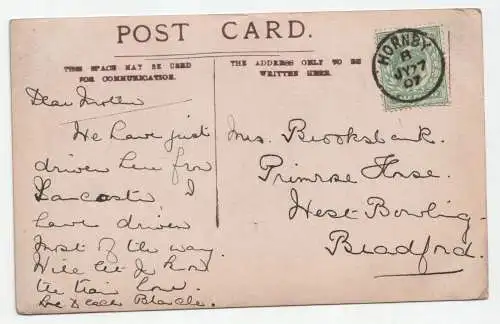 POST CARD.
THIS SPACE MAY BE USED
FOR COMMUNICATION.
THE ADDRESS ONLY TO BE
WRITTEN HERE.
HORNBY
A
JY 7
07
Dear Mother
We have just
driven here from
Lancaster I
have driven
most of the way.
Will let you know
the train
love Blanche.
Mrs. Brooksbank.
Primrose House.
West Bowling
Bradford.